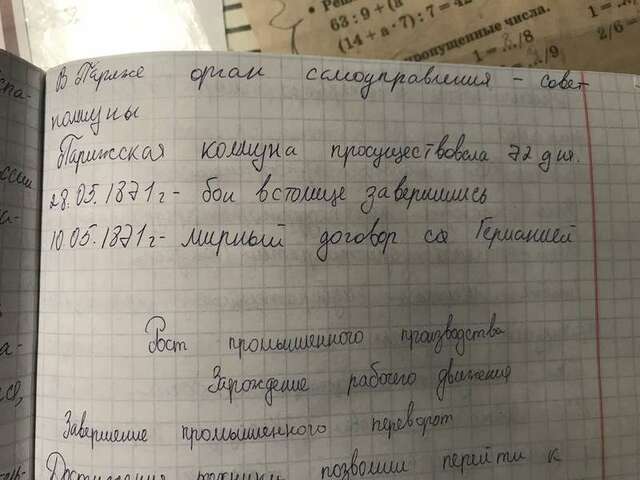 В Париже орган самоуправления - совет
коммуны
Парижская комуна просуществовала 72 дня.
28.05.1871г - бои в столице завершились
10.05.1871г - мирный договор ся Германией
Рост промышленного производства
Зарождение рабочего движения
Завершение промышленного переворот
позволили перейти к
63 : 9 + (8
(14 + а · 7) : 7 = 42
пропущенные числа.